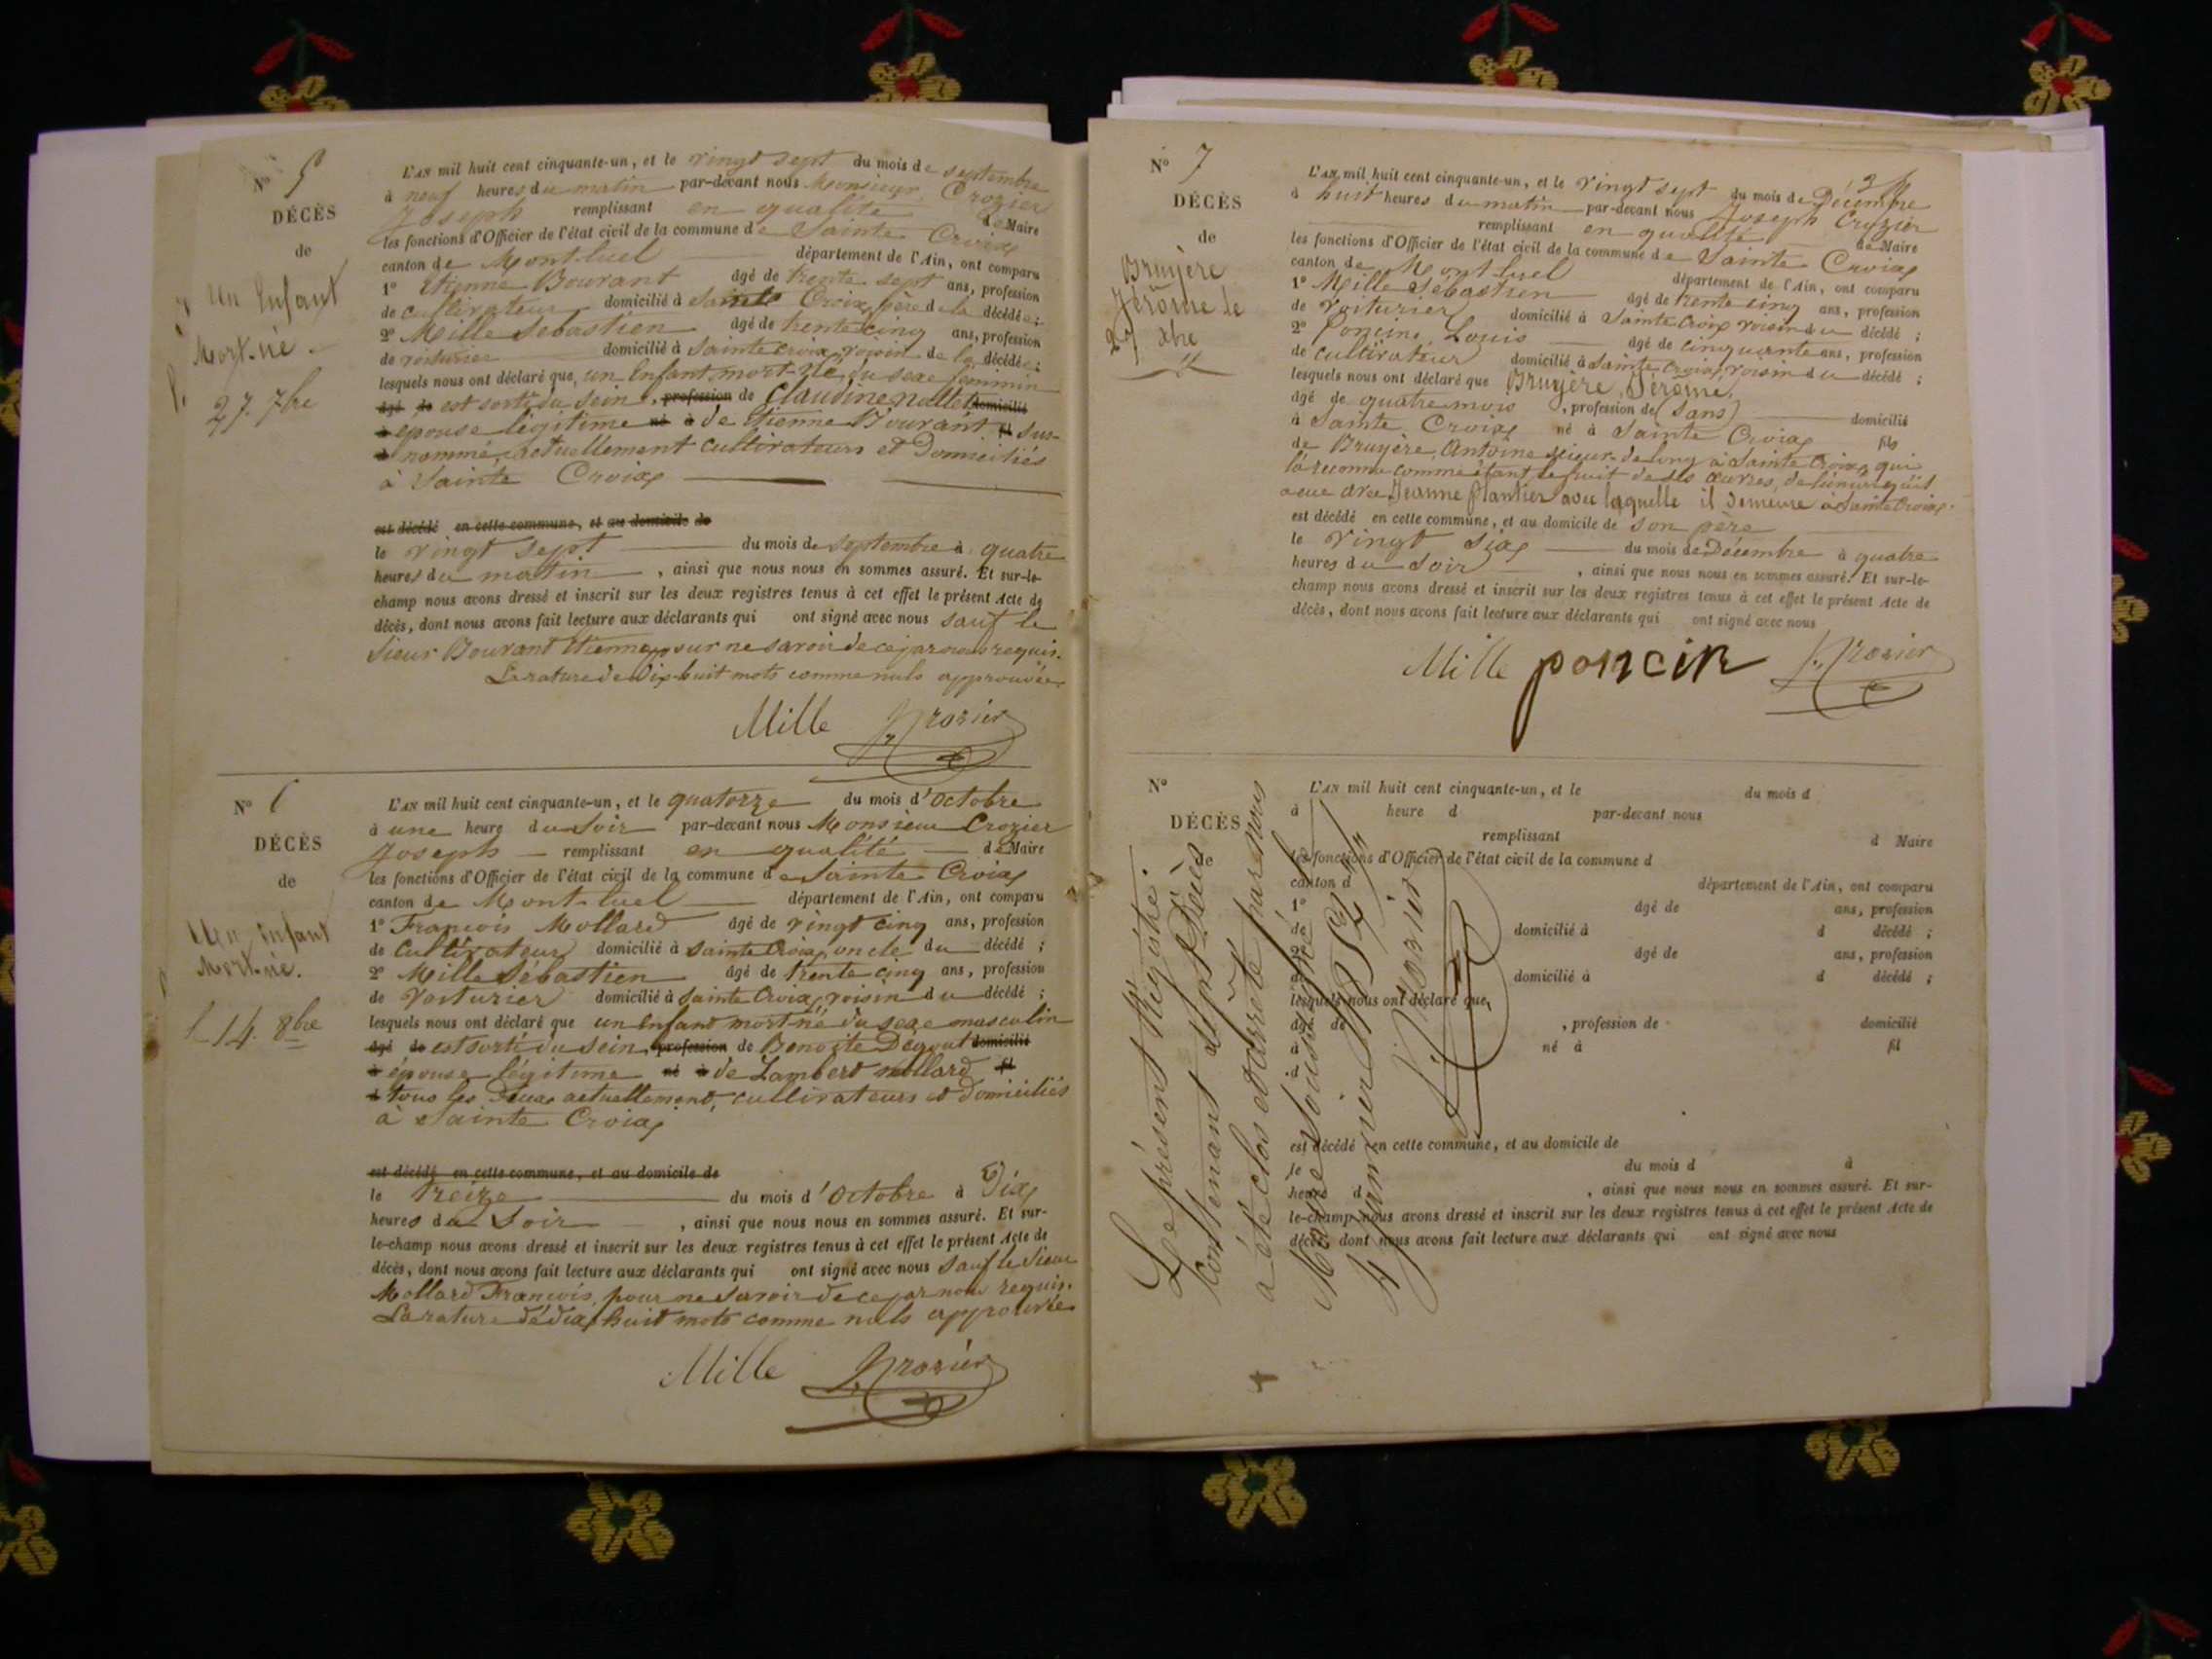 N° 5
DÉCÈS
de
Un Enfant
Mort-né.
27. 7bre
L'AN mil huit cent cinquante-un, et le vingt sept du mois de septembre
à neuf heures du matin par-devant nous Monsieur Crozier
Joseph remplissant en qualité de Maire
les fonctions d'Officier de l'état civil de la commune de Sainte Croix
canton de Montluel département de l'Ain, ont comparu
1° Etienne Bouvant âgé de trente sept ans, profession
de cultivateur domicilié à Sainte Croix, père de la décédée;
2° Mille Sébastien âgé de trente cinq ans, profession
de voiturier domicilié à Sainte croix, voisin de la décédée;
lesquels nous ont déclaré que, un Enfant mort-né, du sexe féminin
âgé de est sorti du sein, profession de Claudine Nallet domicilié
à épouse légitime né à de Etienne Bouvant fil sus-
à nommé, actuellement cultivateurs et Domiciliés
à Sainte Croix
est décédé en cette commune, et au domicile de
le vingt sept du mois de septembre à quatre
heures du matin, ainsi que nous nous en sommes assuré. Et sur-le-
champ nous avons dressé et inscrit sur les deux registres tenus à cet effet le présent Acte de
décès, dont nous avons fait lecture aux déclarants qui ont signé avec nous sauf le
sieur Bouvant Etienne, pour ne savoir de ce par nous requis.
La rature de Dix-huit mots comme nuls approuvée.
Mille J. Crozier
N° 6
DÉCÈS
de
Un Enfant
Mort-né.
14. 8bre
L'AN mil huit cent cinquante-un, et le quatorze du mois d'Octobre
à une heure du Soir par-devant nous Monsieur Crozier
Joseph remplissant en qualité de Maire
les fonctions d'Officier de l'état civil de la commune de Sainte Croix
canton de Montluel département de l'Ain, ont comparu
1° François Mollard âgé de vingt cinq ans, profession
de Cultivateur domicilié à Sainte Croix, oncle du décédé;
2° Mille Sébastien âgé de trente cinq ans, profession
de Voiturier domicilié à Sainte Croix, voisin du décédé;
lesquels nous ont déclaré que un Enfant mort né du sexe masculin
âgé de est sorti du sein, profession de Benoite Degout domicilié
à épouse légitime né à de Lambert mollard fil
à tous les Deux actuellement, cultivateurs et Domiciliés
à Sainte Croix
est décédé en cette commune, et au domicile de
le treize du mois d'Octobre à Dix
heures du Soir, ainsi que nous nous en sommes assuré. Et sur-
le-champ nous avons dressé et inscrit sur les deux registres tenus à cet effet le présent Acte de
décès, dont nous avons fait lecture aux déclarants qui ont signé avec nous Sauf le Sieur
Mollard François, pour ne savoir de ce par nous requis.
La rature de dix huit mots comme nuls approuvée
Mille J. Crozier
N° 7
DÉCÈS
de
Bruyère
Jérôme le
27 Xbre
L'AN mil huit cent cinquante-un, et le vingt sept du mois de Décembre
à huit heures du matin par-devant nous Joseph Crozier
remplissant en qualité de Maire
les fonctions d'Officier de l'état civil de la commune de Sainte Croix
canton de Montluel département de l'Ain, ont comparu
1° Mille Sébastien âgé de trente cinq ans, profession
de Voiturier domicilié à Sainte Croix voisin du décédé;
2° Poncin, Louis âgé de cinquante ans, profession
de cultivateur domicilié à Sainte Croix, voisin du décédé;
lesquels nous ont déclaré que Bruyère, Jérome,
âgé de quatre mois, profession de (Sans) domicilié
à Sainte Croix né à Sainte Croix fils
de Bruyère, Antoine scieur de long à Sainte Croix, qui
l'a reconnu comme étant le fruit de ses œuvres, de l'union qu'il
a eue avec Jeanne Plantier avec laquelle il demeure à Sainte Croix.
est décédé en cette commune, et au domicile de son père
le vingt Six du mois de Décembre à quatre
heures du Soir, ainsi que nous nous en sommes assuré. Et sur-le-
champ nous avons dressé et inscrit sur les deux registres tenus à cet effet le présent Acte de
décès, dont nous avons fait lecture aux déclarants qui ont signé avec nous
Mille poncin J. Crozier
N°
DÉCÈS
de
L'AN mil huit cent cinquante-un, et le du mois d
à heure d par-devant nous
remplissant d Maire
les fonctions d'Officier de l'état civil de la commune d
canton d département de l'Ain, ont comparu
1° âgé de ans, profession
de domicilié à d décédé;
2° âgé de ans, profession
de domicilié à d décédé;
lesquels nous ont déclaré que,
âgé de, profession de domicilié
à né à fil
à
est décédé en cette commune, et au domicile de
le du mois d à
heure d, ainsi que nous nous en sommes assuré. Et sur-
le-champ nous avons dressé et inscrit sur les deux registres tenus à cet effet le présent Acte de
décès, dont nous avons fait lecture aux déclarants qui ont signé avec nous
Le présent Registre.
Contenant sept Décès
a été clos et arrêté par nous
Maire Soussigné le
4 Janvier 1852
J. Crozier